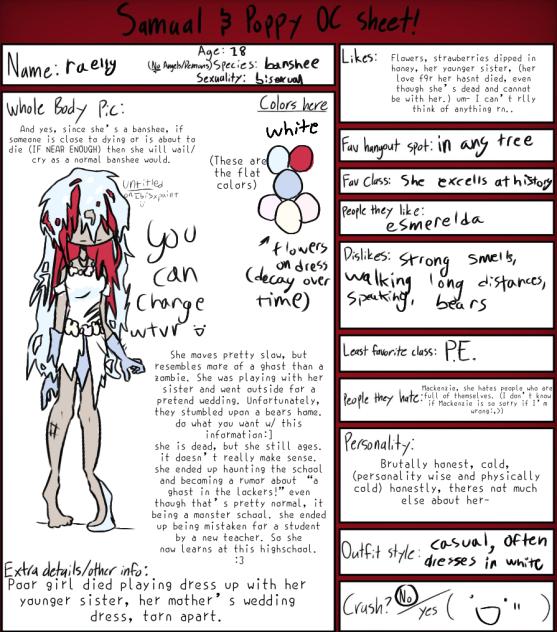 Samual & Poppy OC sheet!
Name: raelly
Age: 18
(No Angels/Demons) Species: banshee
Sexuality: bisexual
Whole Body Pic:
And yes, since she's a banshee, if
someone is close to dying or is about to
die (IF NEAR ENOUGH) then she will wail/
cry as a normal banshee would.
Untitled
on Ibisxpaint
Colors here
white
(These are
the flat
colors)
flowers
on dress
(decay over
time)
you
can
change
wtvr
She moves pretty slow, but
resembles more of a ghost than a
zombie. She was playing with her
sister and went outside for a
pretend wedding. Unfortunately,
they stumbled upon a bears home.
do what you want w/ this
information:]
she is dead, but she still ages.
it doesn't really make sense.
she ended up haunting the school
and becoming a rumor about "a
ghost in the lockers!" even
though that's pretty normal, it
being a monster school. she ended
up being mistaken for a student
by a new teacher. So she
now learns at this highschool.
:3
Extra details/other info:
Poor girl died playing dress up with her
younger sister, her mother's wedding
dress, torn apart.
Likes:
Flowers, strawberries dipped in
honey, her younger sister, (her
love f9r her hasnt died, even
though she's dead and cannot
be with her.) um- I can't rlly
think of anything rn..
Fav hangout spot: in any tree
Fav Class: She excells at history
People they like:
esmerelda
Dislikes: Strong smells,
walking long distances,
speaking, bears
Least favorite class: P.E.
People they hate: Mackenzie, she hates people who are
full of themselves. (I don't know
if Mackenzie is so sorry if I'm
wrong:,))
Personality:
Brutally honest, cold,
(personality wise and physically
cold) honestly, theres not much
else about her-
Outfit style: casual, often
dresses in white
Crush? No/yes (